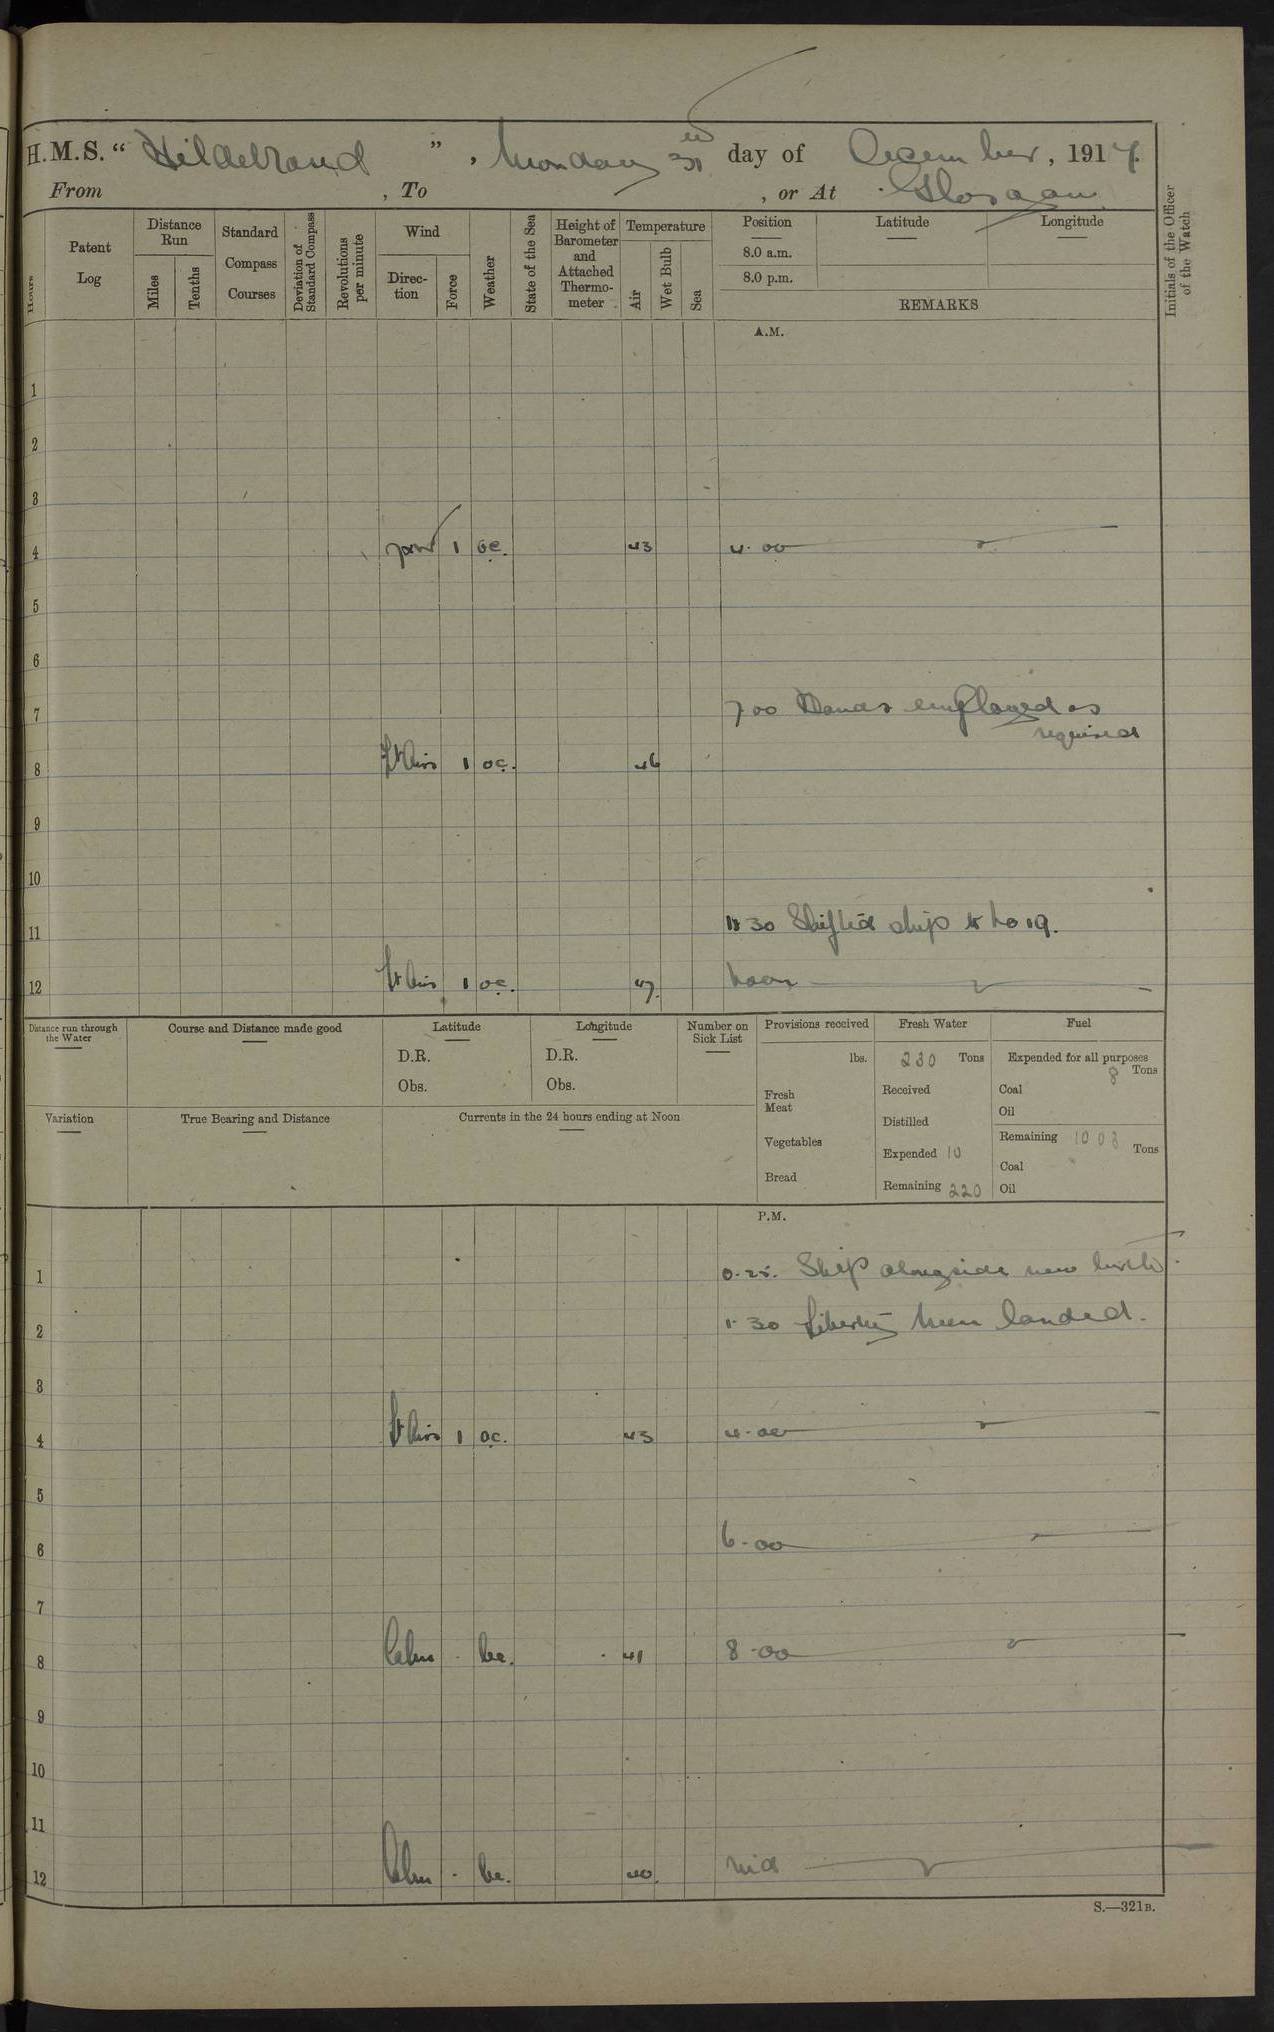 H.M.S. “ Hildebrand ” , Monday 31 day of December, 1917
From , To , or At Glasgow
Hours
Patent Log
Distance Run
Miles
Tenths
Standard Compass Courses
Deviation of Standard Compass
Revolutions per minute
Wind
Direction
Force
Weather
State of the Sea
Height of Barometer and Attached Thermometer
Temperature
Air
Wet Bulb
Sea
Position
8.0 a.m.
8.0 p.m.
Latitude
Longitude
REMARKS
Initials of the Officer of the Watch
A.M.
1
2
3
4 1 oc. 43 4.00
5
6
7 700 Hands employed as
required
8 Lt Airs 1 oc. 46
9
10
11 11 30 Shifted ship to No 19.
12 Lt Airs 1 oc. 47. Noon
Distance run through the Water
Course and Distance made good
Latitude
D.R.
Obs.
Longitude
D.R.
Obs.
Number on Sick List
Provisions received
lbs.
Fresh Meat
Vegetables
Bread
Fresh Water
230 Tons
Received
Distilled
Expended 10
Remaining 220
Fuel
Expended for all purposes
8 Tons
Coal
Oil
Remaining 1008 Tons
Coal
Oil
Variation
True Bearing and Distance
Currents in the 24 hours ending at Noon
P.M.
1 0.25. Ship alongside new birth.
2 1.30 Liberty Men landed.
3
4 Lt Airs 1 oc. 43 4.00
5
6 6.00
7
8 Calm . bc. 41 8.00
9
10
11
12 Calm . bc. 40. Mid
S.—321B.